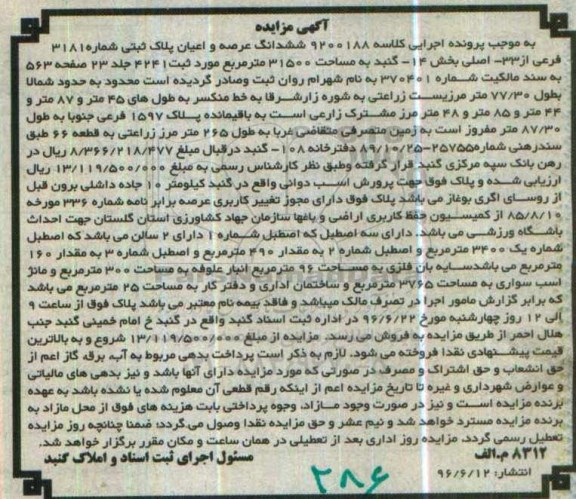 آگهی مزایده
به موجب پرونده اجرایی کلاسه ۹۲۰۰۱۸۸ ششدانگ عرصه و اعیان پلاک ثبتی شماره۳۱۸۱
فرعی از۳۳- اصلی بخش ۱۴- گنبد به مساحت ۳۱۵۰۰ مترمربع مورد ثبت۴۲۴۱ جلد ۲۳ صفحه ۵۶۳
به سند مالکیت شماره ۳۷۰۴۰۱ به نام شهرام روان ثبت وصادر گردیده است محدود به حدود شمالا
بطول ۷۷/۳۰ متر مرزیست زراعتی به شوره زارشرقا به خط منکسر به طول های ۴۵ متر و ۸۷ متر و
۴۴ متر و ۸۵ متر و ۴۸ متر مرز مشترک زارعی است به باقیمانده پلاک ۱۵۹۷ فرعی جنوبا به طول
۸۷/۳۰ متر مفروز است به زمین متصرفی متقاضی غربا به طول ۲۶۵ متر مرز زراعتی به قطعه ۶۶ طبق
سندرهنی شماره۲۵۷۵۵-۸۹/۱۰/۲۵ دفترخانه ۱۰۸- گنبد درقبال مبلغ ۸/۳۶۶/۲۱۸/۴۷۷ ریال در
رهن بانک سپه مرکزی گنبد قرار گرفته وطبق نظر کارشناس رسمی به مبلغ ۱۳/۱۱۹/۵۰۰/۰۰۰ ریال
ارزیابی شده و پلاک فوق جهت پرورش اسب دوانی واقع در گنبد کیلومتر ۱۰ جاده داشلی برون قبل
از روستای اگری بوغاز می باشد پلاک فوق دارای مجوز تغییر کاربری عرصه برابر نامه شماره ۳۳۶ مورخه
۸۵/۸/۱۰ از کمیسیون حفظ کاربری اراضی و باغها سازمان جهاد کشاورزی استان گلستان جهت احداث
باشگاه ورزشی می باشد. دارای سه اصطبل که اصطبل شماره ۱ دارای ۲ سالن می باشد که اصطبل
شماره یک ۳۴۰۰ مترمربع و اصطبل شماره ۲ به مقدار ۴۹۰ مترمربع و اصطبل شماره ۳ به مقدار ۱۶۰
مترمربع می باشدسایه بان فلزی به مساحت ۹۶ مترمربع انبار علوفه به مساحت ۳۰۰ مترمربع و مانژ
اسب سواری به مساحت ۳۷۶۵ مترمربع و ساختمان اداری و دفتر کار به مساحت ۲۵ مترمربع می باشد
که برابر گزارش مامور اجرا در تصرف مالک میباشد و فاقد بیمه نامه معتبر می باشد پلاک فوق از ساعت ۹
الی ۱۲ روز چهارشنبه مورخ ۹۶/۶/۲۲ در اداره ثبت اسناد گنبد واقع در گنبد خ امام خمینی گنبد جنب
هلال احمر از طریق مزایده به فروش می رسد. مزایده از مبلغ ۱۳/۱۱۹/۵۰۰/۰۰۰ شروع و به بالاترین
قیمت پیشنهادی نقدا فروخته می شود. لازم به ذکر است پرداخت بدهی مربوط به آب، برق، گاز اعم از
حق انشعاب و حق اشتراک و مصرف در صورتی که مورد مزایده دارای آنها باشد و نیز بدهی های مالیاتی
و عوارض شهرداری و غیره تا تاریخ مزایده اعم از اینکه رقم قطعی آن معلوم شده یا نشده باشد به عهده
برنده مزایده است و نیز در صورت وجود مازاد، وجوه پرداختی بابت هزینه های فوق از محل مازاد به
برنده مزایده مسترد خواهد شد و نیم عشر و حق مزایده نقدا وصول می گردد؛ ضمنا چنانچه روز مزایده
تعطیل رسمی گردد، مزایده روز اداری بعد از تعطیلی در همان ساعت و مکان مقرر برگزار خواهد شد.
۸۳۱۲ م.الف مسئول اجرای ثبت اسناد و املاک گنبد
انتشار: ۹۶/۶/۱۲
۲۸۶